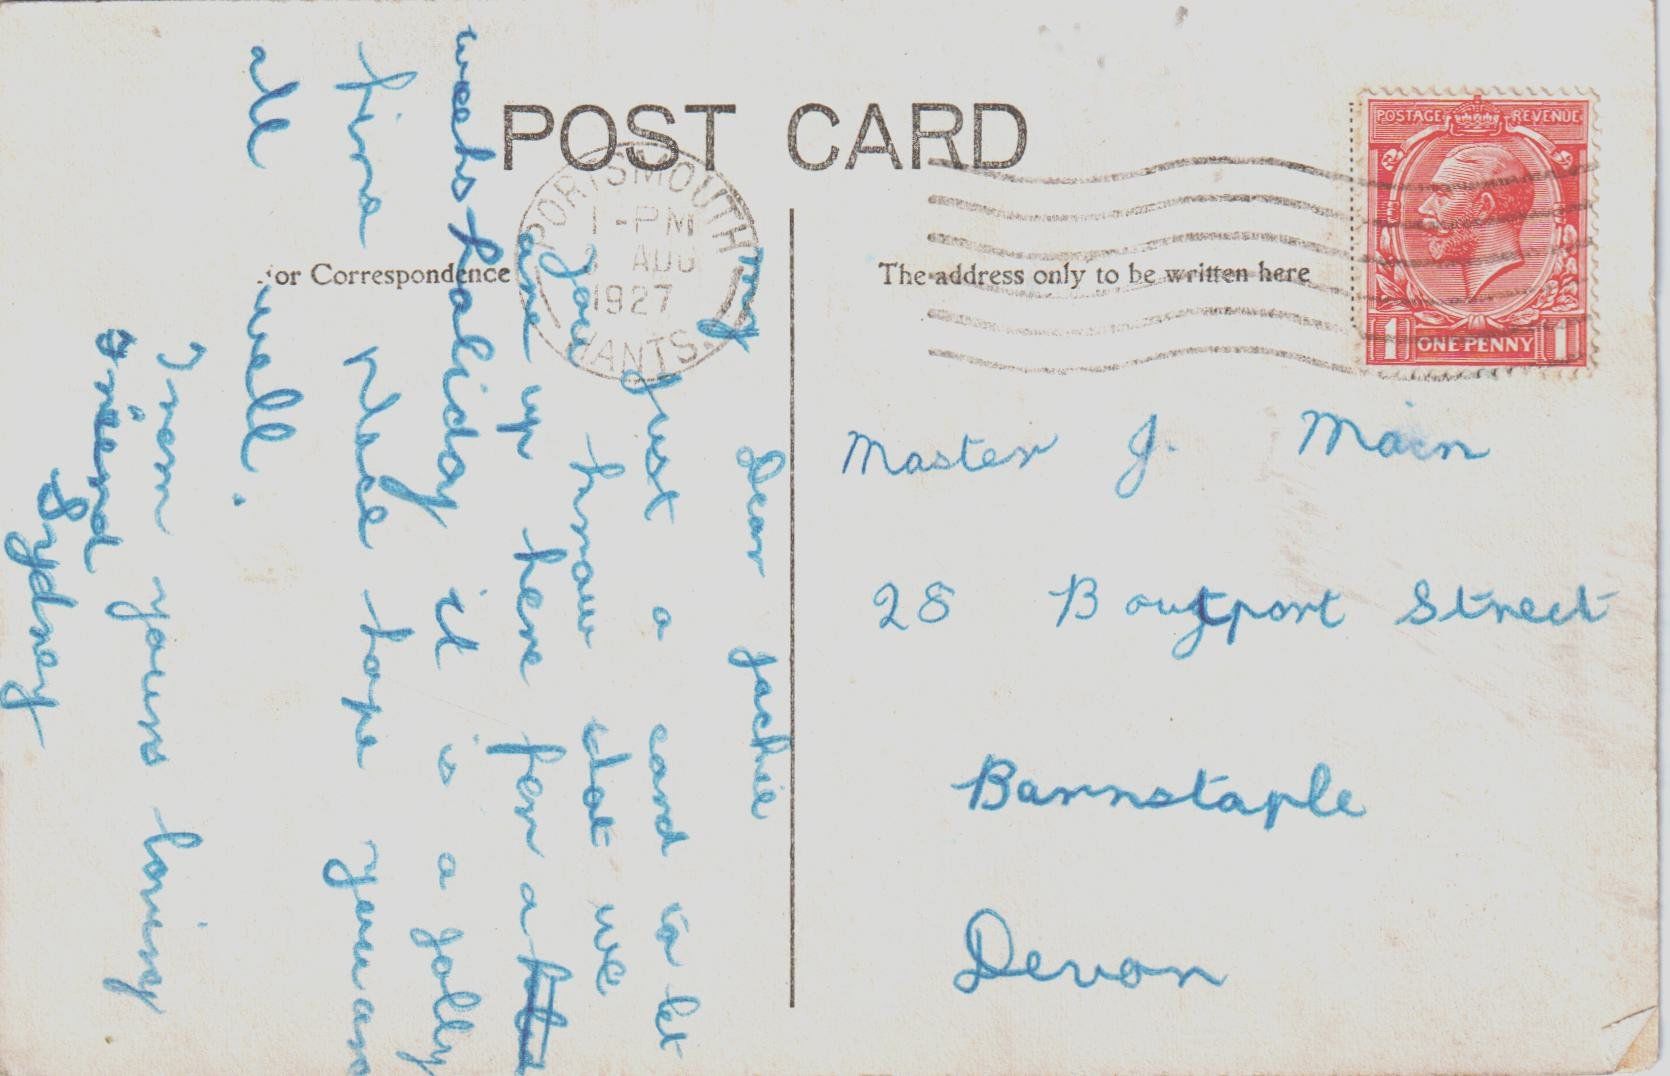 POST CARD
PORTSMOUTH
1-PM
AUG
1927
HANTS.
POSTAGE REVENUE
1 ONE PENNY 1
or Correspondence
The address only to be written here
Master J. Main
28 Boutport Street
Barnstaple
Devon
my Dear Jackie
Just a card to let
you know that we
are up here for a
weeks holiday it is a jolly
fine place hope you are
all well.
From yours loving
Friend
Sydney